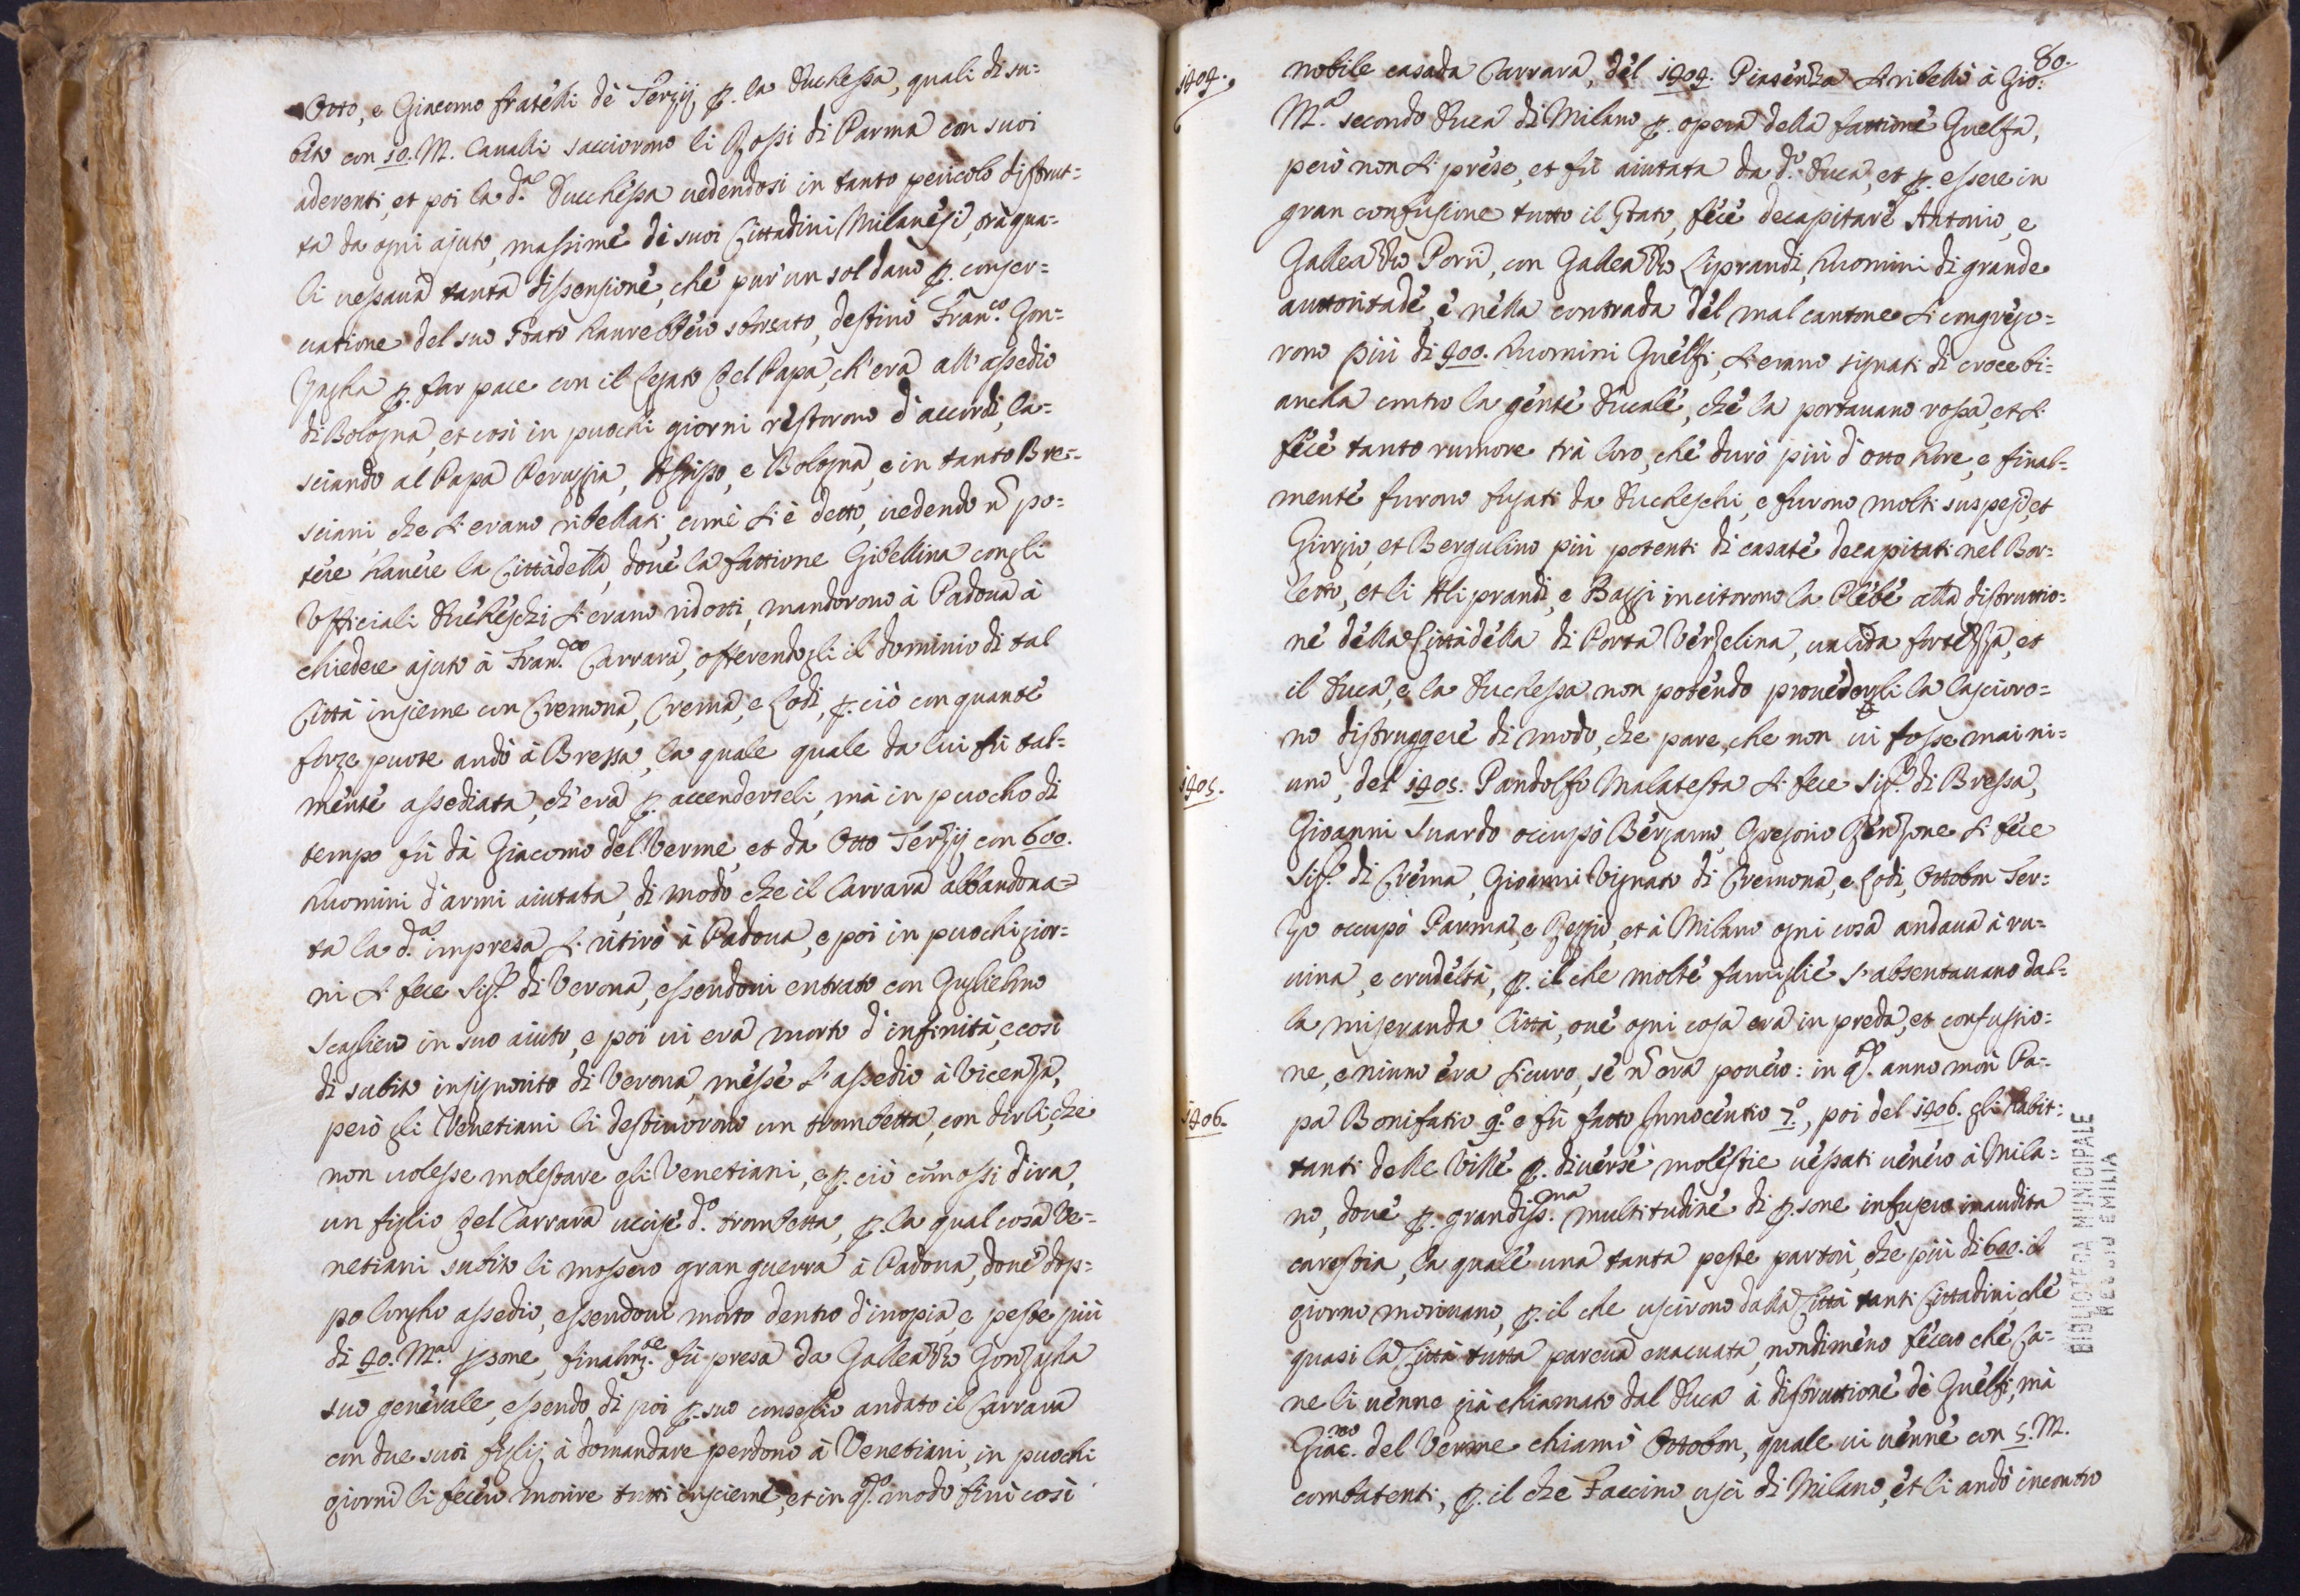 Otto, e Giacomo fratelli dè Terzij, p. la Duchessa, quali di su=
bito con 10. M. Caualli scacciorono li Rossi di Parma con suoi
aderenti, et poi la d.a Ducchessa uedendosi in tanto pericolo distrut=
ta da ogni ajuto, massime dè suoi Cittadini Milanesi, trà qua=
li uessaua tanta dissensione, che pur' un sol dano p. conser=
uatione del suo Stato haurebbero sborsato, destinò Fran.co Gon=
zagha p. far pace con il Legato del Papa, ch'era all'assedio
di Bologna, et così in puochi giorni restorono d'accordi, la=
sciando al Papa Peruggia, Assiso, e Bologna, e in tanto Bre=
sciani, che si erano ribellati, come si è detto, uedendo n po=
tere hauere la Cittadella, doue la fattione Gibellina con gli
Vfficiali Ducheschi si erano ridotti, mandorono à Padoua à
chiedere ajuto à Fran.co Carrara, offerendogli il dominio di tal
Città insieme con Cremona, Crema, e Lodi, p. ciò con quante
forze puote andò à Bressa, la quale quale da lui fù tal=
mente assediata, ch'era p. accenderseli, mà in puocho di
tempo fù dà Giacomo del Verme, et da Otto Terzij con 600.
huomini d'armi aiutata, di modo, che il Carrara abbandona=
ta la d.a impresa si ritirò à Padoua, e poi in puochi gior=
ni si fece Sig.r di Verona, essendoui entrato con Guglielmo
Scagliero in suo aiuto, e poi ui era morto d'infinità, e così
di subito insignorito di Verona, messe l'assedio à Vicenza,
però gli Venetiani li destinorono un trombetta, con dirli, che
non uolesse molestare gli Venetiani, e p. ciò comossi d'ira,
un figlio del Carrara uccise d.o trombetta, p. la qual cosa Ve=
netiani subito li mossero gran guerra à Padoua, doue dop=
po longho assedio, essendoui morto dentro d'inopia, e peste più
di 40. M.a psone, finalm.te fù presa da Galleazzo Gonzagha
suo generale, essendo di poi p. suo conseglio andato il Carrara
con due suoi figlij à domandare perdono à Venetiani, in puochi
giorni li fecero morire tutti insieme, et in q.o modo finì così
80.
1404.
nobile casada Carrara, del 1404. Piasenza si ribellò à Gio:
M.a secondo Duca di Milano p. opera della fattione Guelfa,
però non si prese, et fù aiutata da d.o Duca, et p. essere in
gran confusione tutto il Stato, fece decapitare Antonio, e
Galleazzo Porri, con Galleazzo Liprandi, huomini di grande
auttoritade, e nella contrada del mal cantone si congrego=
rono più di 400. huomini Guelfi, si erano signati di croce bi=
ancha contro la gente Ducale, che la portauano rossa, et si
fece tanto rumore trà loro, che durò più d'otto hore, e final=
mente furono fugati da Ducheschi, e furono molti suspesi, et
Giorgio, et Bergulino più potenti di casate decapitati nel Bor=
letto, et li Aliprandi, e Bazzi incitorono la Plebe alla distruttio=
ne della Cittadella di Porta Verzelina, ualida fortezza, et
il Duca, e la Duchessa non potendo prouedergli la lascioro=
no distruggere di modo, che pare, che non ui fosse mai ni=
1405.
uno, del 1405. Pandolfo Malatesta si fece Sig.r di Bressa,
Gioanni Suardo occupò Bergamo, Gregorio Benzone si fece
Sig.r di Crema, Gioanni Vignato di Cremona, e Lodi, Ottobon Ter=
zo occupò Parma, e Reggio, et à Milano ogni cosa andaua à ru=
uina, e crudeltà, p. il che molte famiglie s'absentauano dal=
la miseranda Città, oue ogni cosa era in preda, et confussio=
ne, e niuno era sicuro, se n era pouero: in q.o anno morì Pa=
1406.
pa Bonifatio 9.o e fù fatto Innocentio 7.o, poi del 1406. gli habit=
tanti delle Ville p. diuerse molestie uessati uenero à Mila=
no, doue p. grandiss.ma multitudine di p.sone infusero inaudita
carestia, la quale una tanta peste partorì, che più di 600. il
giorno moriuano, p. il che uscirono dalla Città tanti Cittadini, che
quasi la Città tutta pareua euacuata, nondimeno fecero che Ca=
ne li uenne già chiamato dal Duca à distruttione dè Guelfi, mà
Giac.mo del Verme chiamò Ottobon, quale ui uenne con 5. M.
combatenti, p. il che Faccino uscì di Milano, et li andò incontro
BIBLIOTECA MUNICIPALE
REGGIO EMILIA